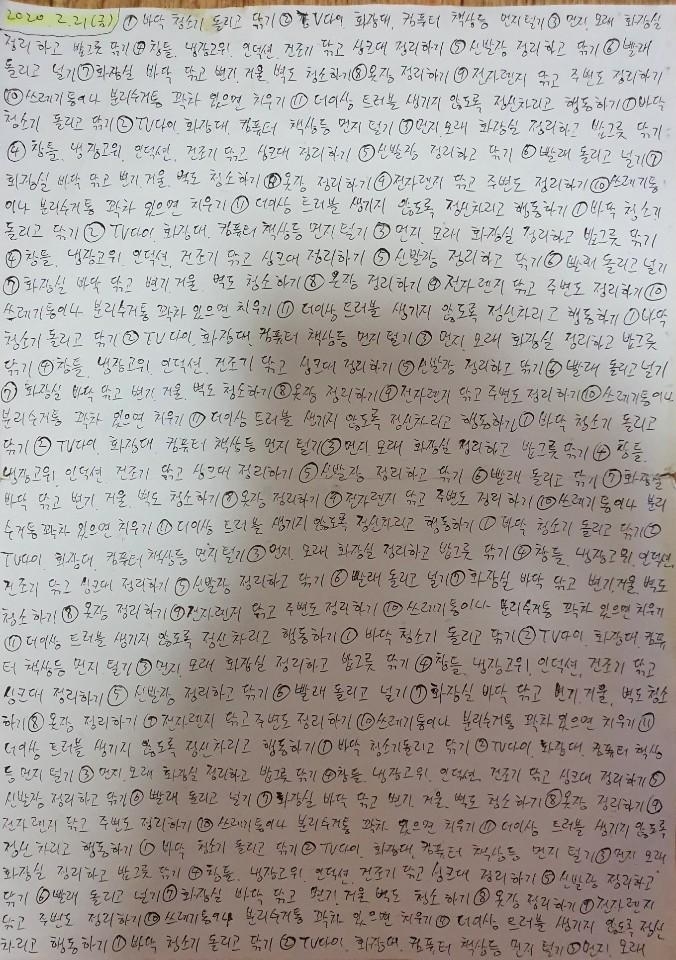 2020. 2.21(금) ① 바닥 청소기 돌리고 닦기 ② TV다이, 화장대, 컴퓨터 책상등 먼지털기 ③ 먼지, 모래 화장실
정리하고 밥그릇 닦기 ④ 창틀, 냉장고위, 인덕션, 건조기 닦고 싱크대 정리하기 ⑤ 신발장 정리하고 닦기 ⑥ 빨래
돌리고 널기 ⑦ 화장실 바닥 닦고 변기, 거울, 벽도 청소하기 ⑧ 옷장 정리하기 ⑨ 전자렌지 닦고 주변도 정리하기
⑩ 쓰레기통이나 분리수거통 꽉차 있으면 치우기 ⑪ 더이상 트러블 생기지 않도록 정신차리고 행동하기 ① 바닥
청소기 돌리고 닦기 ② TV다이, 화장대, 컴퓨터 책상등 먼지 털기 ③ 먼지, 모래 화장실 정리하고 밥그릇 닦기
④ 창틀, 냉장고위, 인덕션, 건조기 닦고 싱크대 정리하기 ⑤ 신발장 정리하고 닦기 ⑥ 빨래 돌리고 널기 ⑦
화장실 바닥 닦고 변기, 거울, 벽도 청소하기 ⑧ 옷장 정리하기 ⑨ 전자렌지 닦고 주변도 정리하기 ⑩ 쓰레기통
이나 분리수거통 꽉차 있으면 치우기 ⑪ 더이상 트러블 생기지 않도록 정신차리고 행동하기 ① 바닥 청소기
돌리고 닦기 ② TV다이, 화장대, 컴퓨터 책상등 먼지 털기 ③ 먼지, 모래 화장실 정리하고 밥그릇 닦기
④ 창틀, 냉장고위, 인덕션, 건조기 닦고 싱크대 정리하기 ⑤ 신발장 정리하고 닦기 ⑥ 빨래 돌리고 널기
⑦ 화장실 바닥 닦고 변기, 거울, 벽도 청소하기 ⑧ 옷장 정리하기 ⑨ 전자렌지 닦고 주변도 정리하기 ⑩
쓰레기통이나 분리수거통 꽉차 있으면 치우기 ⑪ 더이상 트러블 생기지 않도록 정신차리고 행동하기 ① 바닥
청소기 돌리고 닦기 ② TV다이, 화장대, 컴퓨터 책상등 먼지 털기 ③ 먼지, 모래 화장실 정리하고 밥그릇
닦기 ④ 창틀, 냉장고위, 인덕션, 건조기 닦고 싱크대 정리하기 ⑤ 신발장 정리하고 닦기 ⑥ 빨래 돌리고 널기
⑦ 화장실 바닥 닦고 변기, 거울, 벽도 청소하기 ⑧ 옷장 정리하기 ⑨ 전자렌지 닦고 주변도 정리하기 ⑩ 쓰레기통이나
분리수거통 꽉차 있으면 치우기 ⑪ 더이상 트러블 생기지 않도록 정신차리고 행동하기 ① 바닥 청소기 돌리고
닦기 ② TV다이, 화장대, 컴퓨터 책상등 먼지 털기 ③ 먼지, 모래 화장실 정리하고 밥그릇 닦기 ④ 창틀,
냉장고위, 인덕션, 건조기 닦고 싱크대 정리하기 ⑤ 신발장 정리하고 닦기 ⑥ 빨래 돌리고 닦기 ⑦ 화장실
바닥 닦고 변기, 거울, 벽도 청소하기 ⑧ 옷장 정리하기 ⑨ 전자렌지 닦고 주변도 정리하기 ⑩ 쓰레기통이나 분리
수거통 꽉차 있으면 치우기 ⑪ 더이상 트러블 생기지 않도록 정신차리고 행동하기 ① 바닥 청소기 돌리고 닦기 ②
TV다이, 화장대, 컴퓨터 책상등 먼지 털기 ③ 먼지, 모래 화장실 정리하고 밥그릇 닦기 ④ 창틀, 냉장고위, 인덕션,
건조기 닦고 싱크대 정리하기 ⑤ 신발장 정리하고 닦기 ⑥ 빨래 돌리고 널기 ⑦ 화장실 바닥 닦고 변기, 거울, 벽도
청소하기 ⑧ 옷장 정리하기 ⑨ 전자렌지 닦고 주변도 정리하기 ⑩ 쓰레기통이나 분리수거통 꽉차 있으면 치우기
⑪ 더이상 트러블 생기지 않도록 정신차리고 행동하기 ① 바닥 청소기 돌리고 닦기 ② TV다이, 화장대, 컴퓨
터 책상등 먼지 털기 ③ 먼지, 모래 화장실 정리하고 밥그릇 닦기 ④ 창틀, 냉장고위, 인덕션, 건조기 닦고
싱크대 정리하기 ⑤ 신발장 정리하고 닦기 ⑥ 빨래 돌리고 널기 ⑦ 화장실 바닥 닦고 변기, 거울, 벽도 청소
하기 ⑧ 옷장 정리하기 ⑨ 전자렌지 닦고 주변도 정리하기 ⑩ 쓰레기통이나 분리수거통 꽉차 있으면 치우기 ⑪
더이상 트러블 생기지 않도록 정신차리고 행동하기 ① 바닥 청소기돌리고 닦기 ② TV다이, 화장대, 컴퓨터 책상
등 먼지 털기 ③ 먼지, 모래 화장실 정리하고 밥그릇 닦기 ④ 창틀, 냉장고위, 인덕션, 건조기 닦고 싱크대 정리하기 ⑤
신발장 정리하고 닦기 ⑥ 빨래 돌리고 널기 ⑦ 화장실 바닥 닦고 변기, 거울, 벽도 청소하기 ⑧ 옷장 정리하기 ⑨
전자렌지 닦고 주변도 정리하기 ⑩ 쓰레기통이나 분리수거통 꽉차 있으면 치우기 ⑪ 더이상 트러블 생기지 않도록
정신차리고 행동하기 ① 바닥 청소기 돌리고 닦기 ② TV다이, 화장대, 컴퓨터 책상등 먼지 털기 ③ 먼지, 모래
화장실 정리하고 밥그릇 닦기 ④ 창틀, 냉장고위, 인덕션, 건조기 닦고 싱크대 정리하기 ⑤ 신발장 정리하고
닦기 ⑥ 빨래 돌리고 널기 ⑦ 화장실 바닥 닦고 변기, 거울, 벽도 청소하기 ⑧ 옷장 정리하기 ⑨ 전자렌지
닦고 주변도 정리하기 ⑩ 쓰레기통이나 분리수거통 꽉차 있으면 치우기 ⑪ 더이상 트러블 생기지 않도록 정신
차리고 행동하기 ① 바닥 청소기 돌리고 닦기 ② TV다이, 화장대, 컴퓨터 책상등 먼지 털기 ③ 먼지, 모래